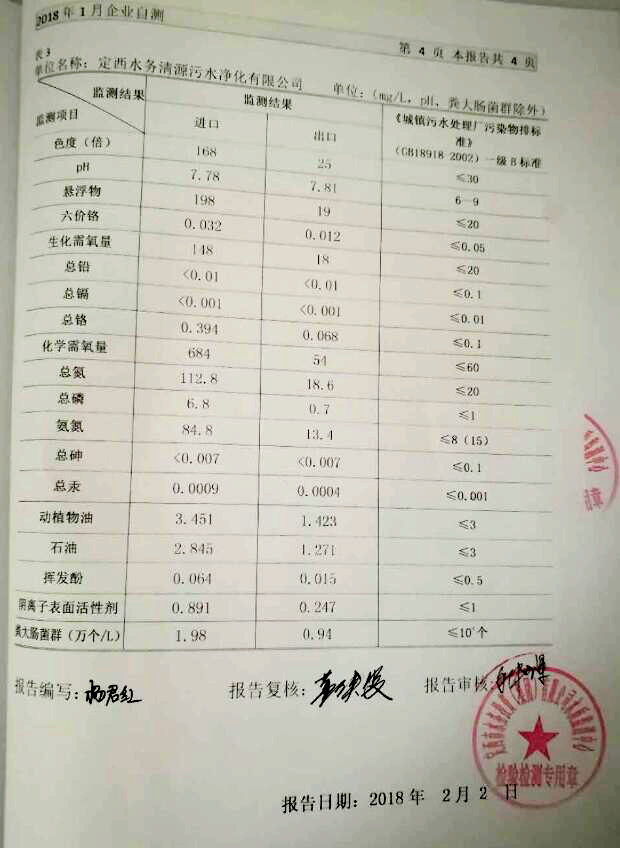 2018年1月企业自测
第 4 页 本报告共 4 页
表3
单位名称：定西水务清源污水净化有限公司 单位：（mg/L，pH、粪大肠菌群除外）
监测结果 监测项目 监测结果 《城镇污水处理厂污染物排标准》（GB18918-2002）一级B标准
进口 出口
色度（倍） 168 25 ≤30
pH 7.78 7.81 6—9
悬浮物 198 19 ≤20
六价铬 0.032 0.012 ≤0.05
生化需氧量 148 18 ≤20
总铅 <0.01 <0.01 ≤0.1
总镉 <0.001 <0.001 ≤0.01
总铬 0.394 0.068 ≤0.1
化学需氧量 684 54 ≤60
总氮 112.8 18.6 ≤20
总磷 6.8 0.7 ≤1
氨氮 84.8 13.4 ≤8（15）
总砷 <0.007 <0.007 ≤0.1
总汞 0.0009 0.0004 ≤0.001
动植物油 3.451 1.423 ≤3
石油 2.845 1.271 ≤3
挥发酚 0.064 0.015 ≤0.5
阴离子表面活性剂 0.891 0.247 ≤1
粪大肠菌群（万个/L） 1.98 0.94 ≤10⁴个
报告编写：杨君红 报告复核： 报告审核：
检验检测专用章
报告日期：2018年 2月2日
用章